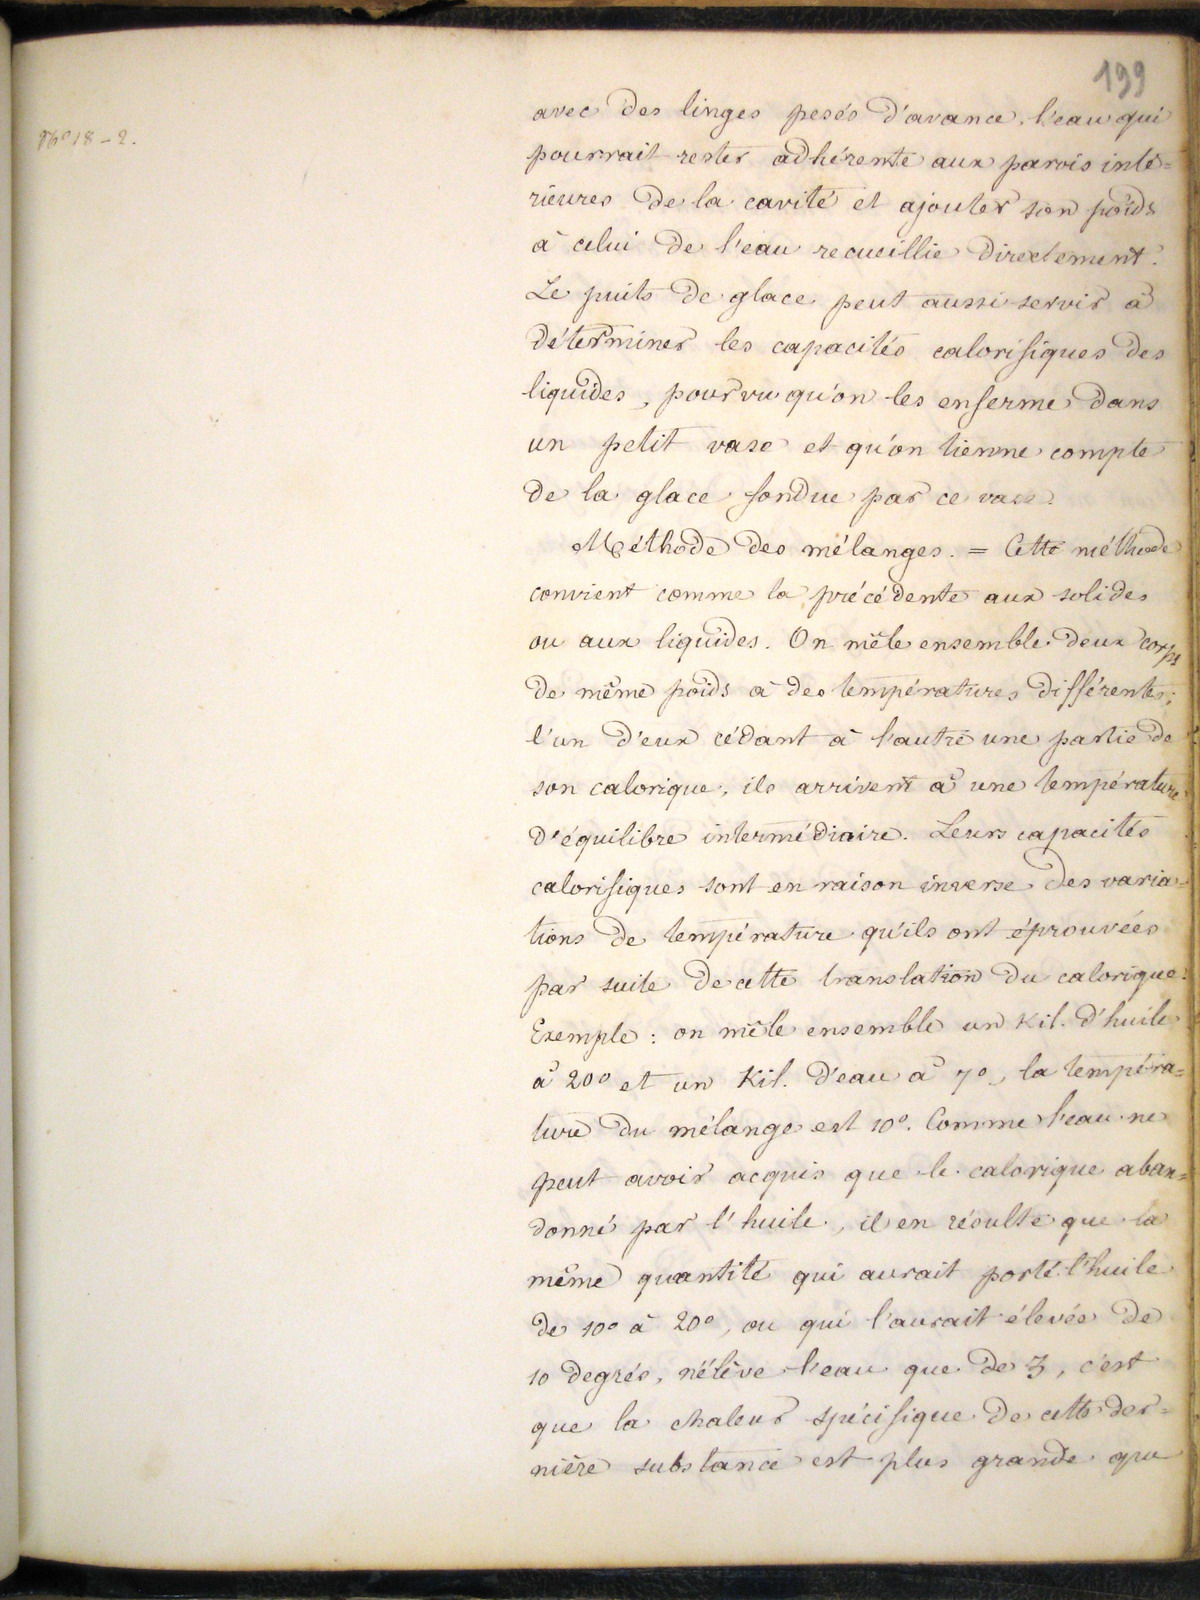 199
Nº 18 - 2.
avec des linges pesés d'avance, l'eau qui
pourrait rester adhérente aux parois inté=
rieures de la cavité et ajouter son poids
à celui de l'eau recueillie directement.
Le puits de glace peut aussi servir à
déterminer les capacités calorifiques des
liquides, pourvu qu'on les enferme dans
un petit vase et qu'on tienne compte
de la glace fondue par ce vase.
Méthode des mélanges. = Cette méthode
convient comme la précédente aux solides
ou aux liquides. On mêle ensemble deux corps
de même poids à des températures différentes;
l'un d'eux cédant à l'autre une partie de
son calorique, ils arrivent à une température
d'équilibre intermédiaire. Leurs capacités
calorifiques sont en raison inverse des varia=
tions de température qu'ils ont éprouvées
par suite de cette translation du calorique.
Exemple : on mêle ensemble un Kil. d'huile
à 20º et un Kil. d'eau à 7º, la tempéra=
ture du mélange est 10º. Comme l'eau ne
peut avoir acquis que le calorique aban=
donné par l'huile, il en résulte que la
même quantité qui aurait porté l'huile
de 10º à 20º, ou qui l'aurait élevée de
10 degrés, n'élève l'eau que de 3, c'est
que la chaleur spécifique de cette der=
nière substance est plus grande que